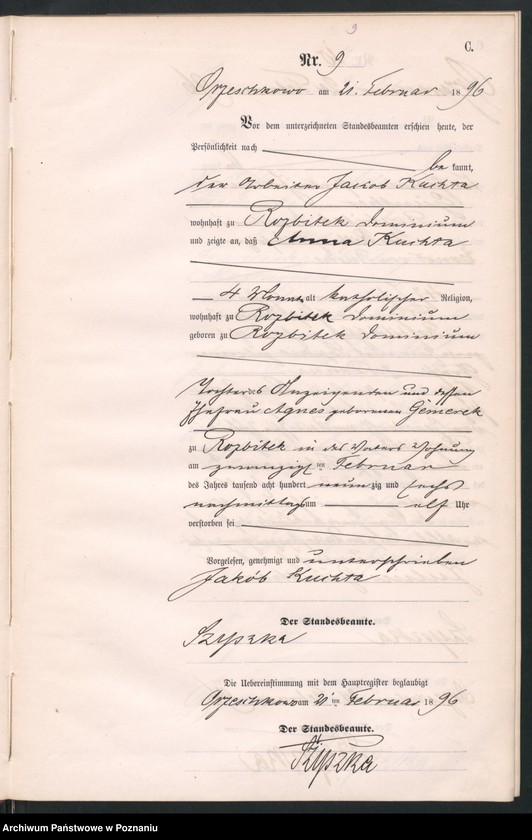 9
C.
Nr. 9
Orzeschkowo am 21. Februar 1896
Vor dem unterzeichneten Standesbeamten erschien heute, der
Persönlichkeit nach
be kannt,
der Arbeiter Jacob Kuchta
wohnhaft zu Rozbitek Dominium
und zeigte an, daß Anna Kuchta
4 Monat alt katholischer Religion,
wohnhaft zu Rozbitek Dominium
geboren zu Rozbitek Dominium
Tochter des Anzeigenden und dessen
Ehefrau Agnes geborenen Gemerek
zu Rozbitek in des Vaters Wohnung
am zwanzigsten Februar
des Jahres tausend acht hundert neunzig und sechs
nachmittags um elf Uhr
verstorben sei
Vorgelesen, genehmigt und unterschrieben
Jakób Kuchta
Der Standesbeamte.
Szyszka
Die Uebereinstimmung mit dem Hauptregister beglaubigt
Orzeschkowo am 21ten Februar 1896
Der Standesbeamte.
Szyszka
Archiwum Państwowe w Poznaniu